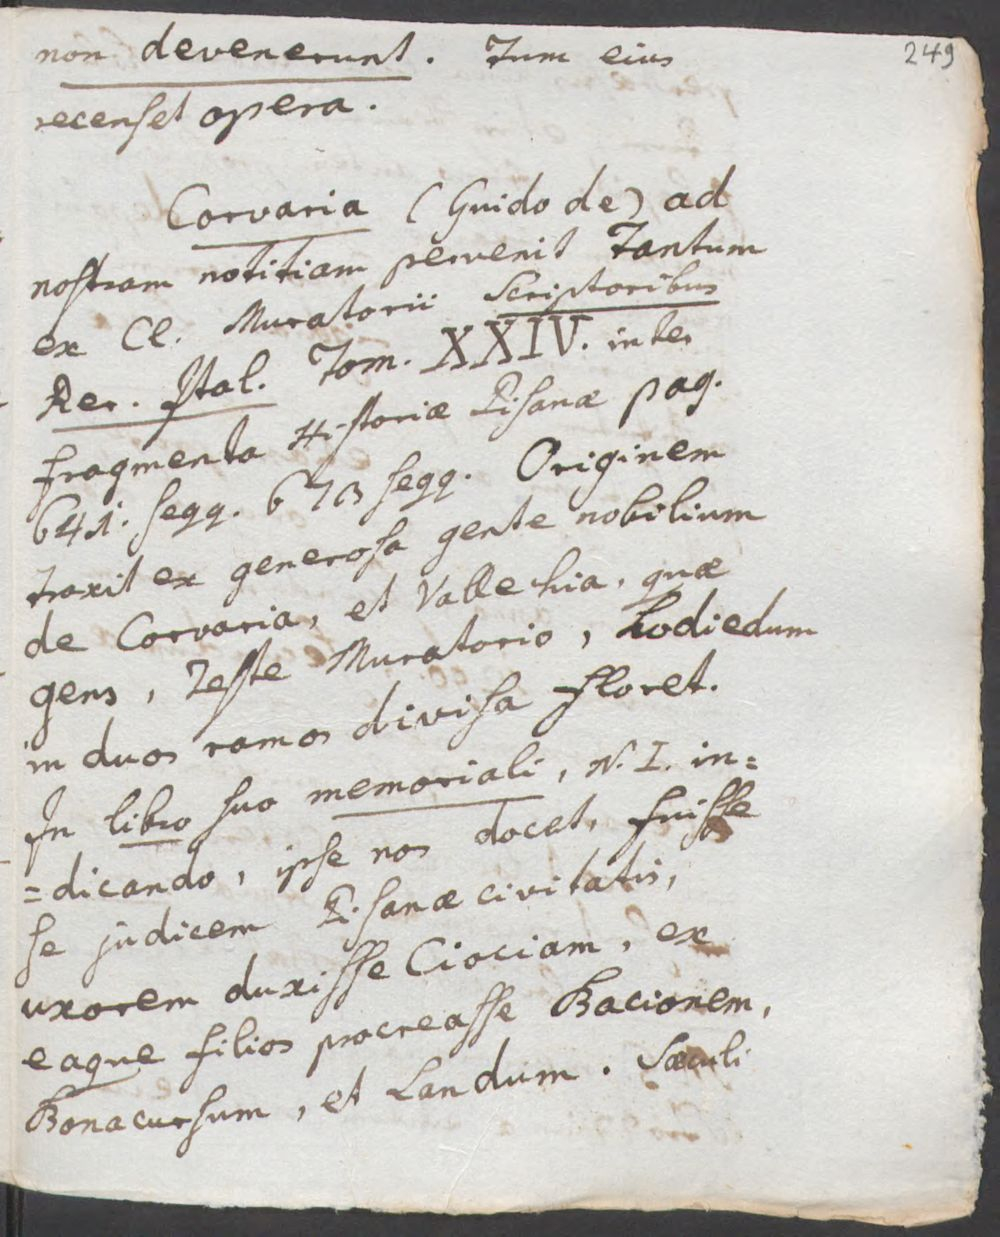 249
non devenerunt. Tum eius
recenset opera.
Corvaria (Guido de) ad
nostram notitiam pervenit Tantum
ex Cl. Muratorii Scriptoribus
Rer. Ital. Tom. XXIV. inter
fragmenta Historiæ Pisanæ pag.
641. seqq. 673 seqq. Originem
traxit ex generosa gente nobilium
de Corvaria, et Vallechia, quæ
gens, Teste Muratorio, hodiedum
in duos ramos divisa floret.
In libro suo memoriali, N. I. in=
=dicando, ipse nos docet, fuisse
se judicem Pisanæ civitatis,
uxorem duxisse Ciociam, ex
eaque filios procreasse Bacionem,
Bonacursum, et Landum. Sæculi